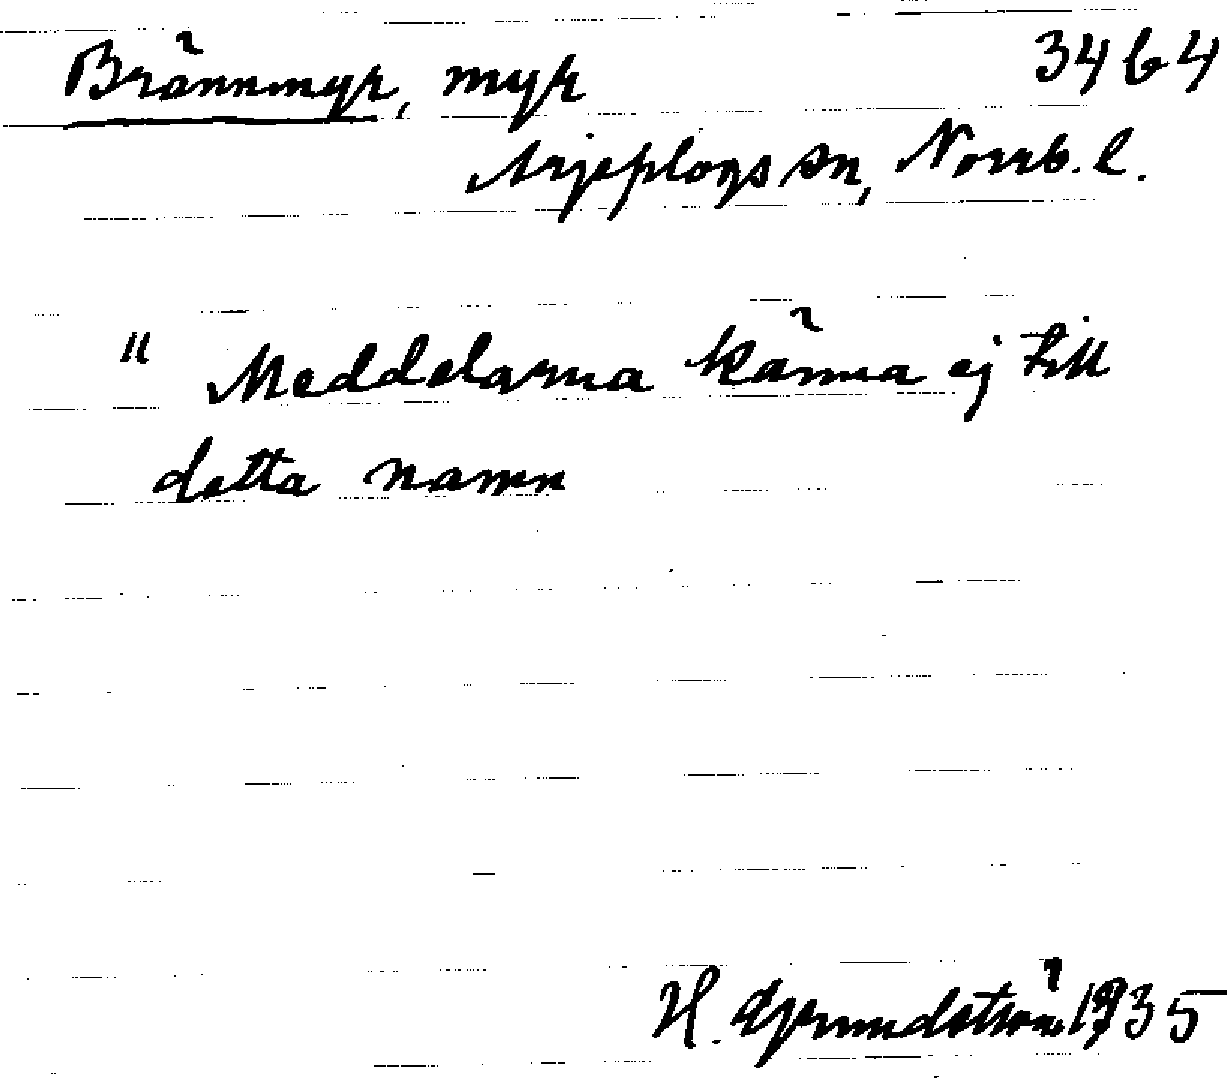 Brännmyr, myr 34 b 4
Arjeplogs sn, Norrb. l.
" Meddelarna känna ej till
detta namn
H. Grundström 1935